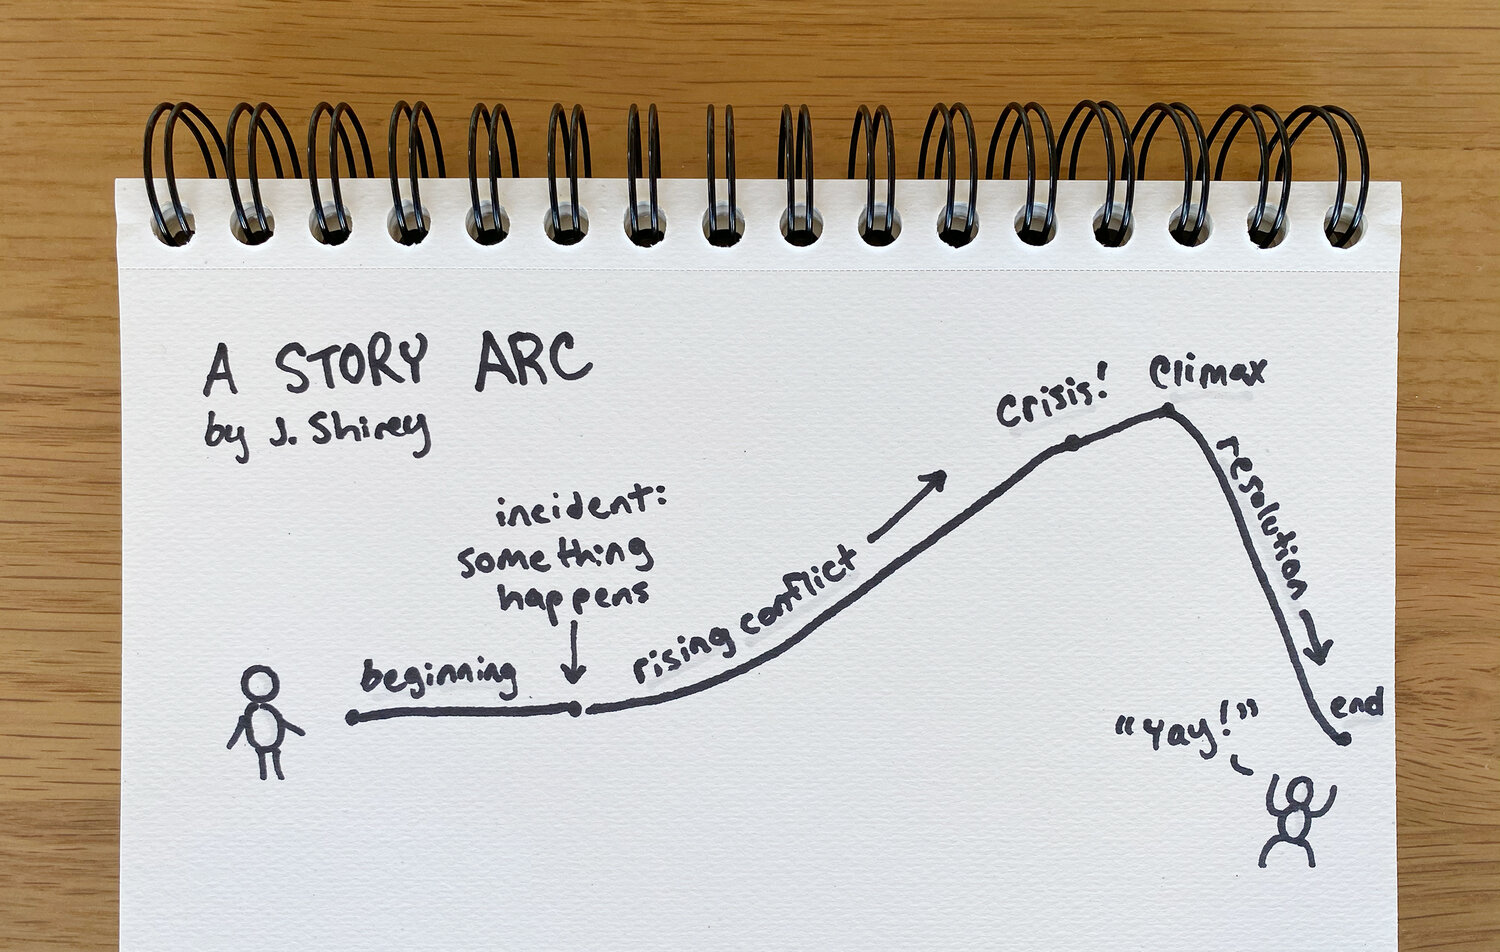 A STORY ARC
by J. Shirey
incident:
something
happens
beginning
rising conflict
Crisis!
Climax
resolution
end
"Yay!"